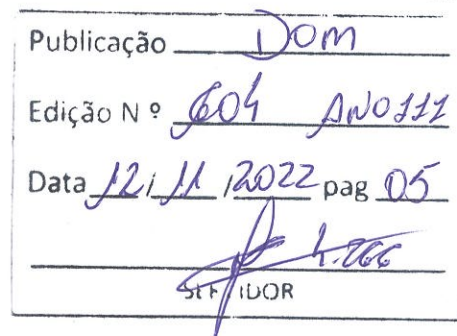 Publicação DOM
Edição Nº 604 ANO III
Data 12/11/2022 pag 05
SERVIDOR